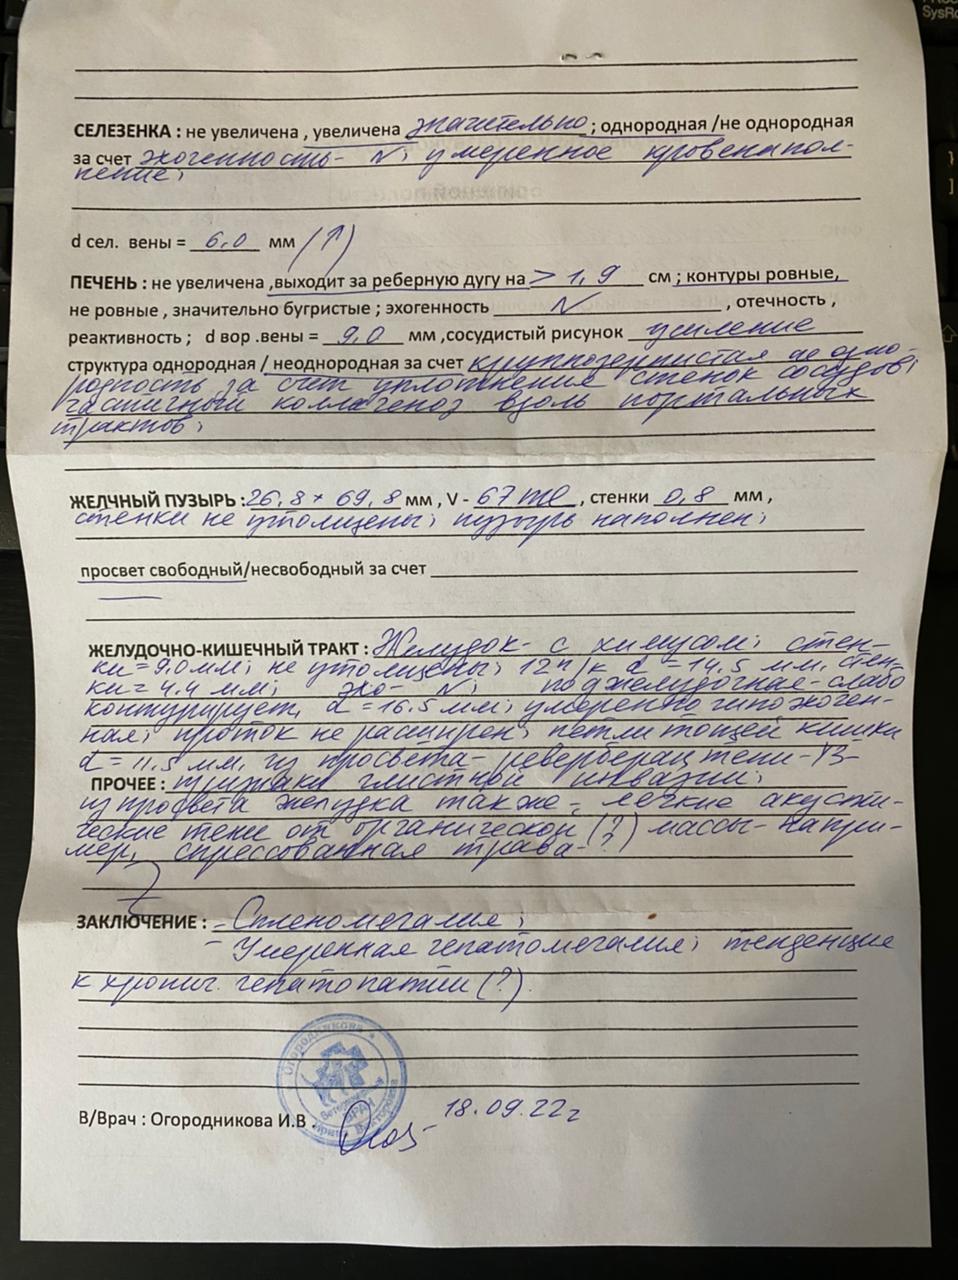 СЕЛЕЗЕНКА : не увеличена , увеличена значительно ; однородная /не однородная
за счет эхогенность - N; умеренное кровенапол-
нение;
d сел. вены = 6,0 мм (↑)
ПЕЧЕНЬ : не увеличена ,выходит за реберную дугу на > 1,9 см ; контуры ровные,
не ровные , значительно бугристые ; эхогенность N , отечность ,
реактивность ; d вор .вены = 9,0 мм ,сосудистый рисунок усиление
структура однородная / неоднородная за счет крупнозернистая не одно-
родность за счет уплотнения стенок сосудов;
частичный коллагеноз вдоль портальных
трактов;
ЖЕЛЧНЫЙ ПУЗЫРЬ : 26,8 × 69,8 мм , V - 67 ml , стенки 0,8 мм ,
стенки не утолщены; пузырь наполнен;
просвет свободный/несвободный за счет
ЖЕЛУДОЧНО-КИШЕЧНЫЙ ТРАКТ : Желудок - с химусом; стен-
ки = 9.0 мм; не утолщены; 12 п/к d = 14,5 мм, стен-
ки = 4.4 мм; эхо - N; поджелудочная - слабо
контурирует, d = 16,5 мм; умеренно гипоэхоген-
ная; проток не расширен; петли тощей кишки
d = 11,5 мм, из просвета - ревербера
ПРОЧЕЕ : глистной инвазии;
из просвета желудка также - легкие акусти-
ческие тени от органической (?) массы - напри-
мер, спрессованная трава - ?)
ЗАКЛЮЧЕНИЕ : - Спленомегалия;
- Умеренная гепатомегалия; тенденция
к хронич. гепатопатии (?).
Огородникова
В/Врач : Огородникова И.В. 18.09.22г